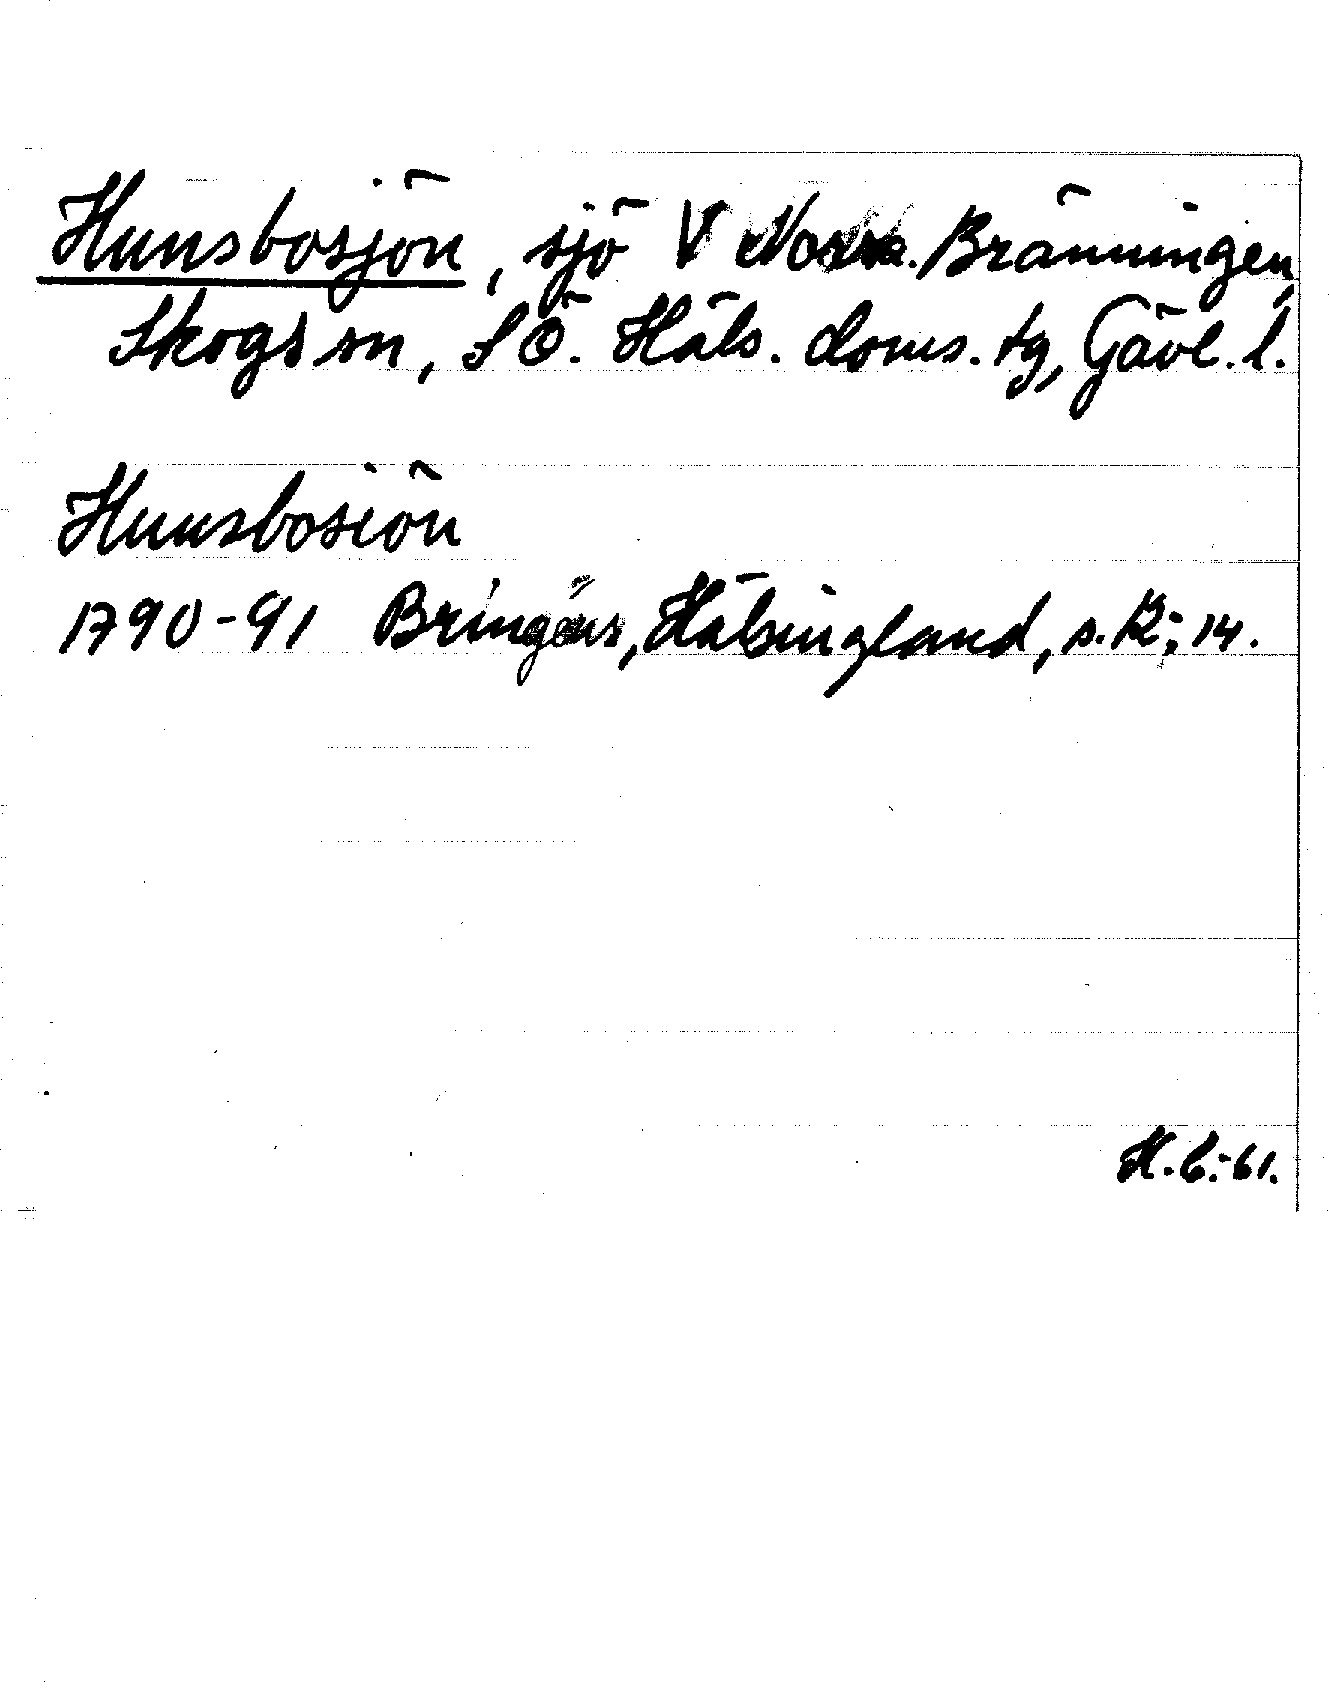 Hunsbosjön, sjö V Norra Bränningen,
Skogs sn, SÖ. Häls. doms. tg, Gävl. l.
Hunsbosiön
1790-91 Bringéus, Hälsingland, s. K:14.
H.C:-61.